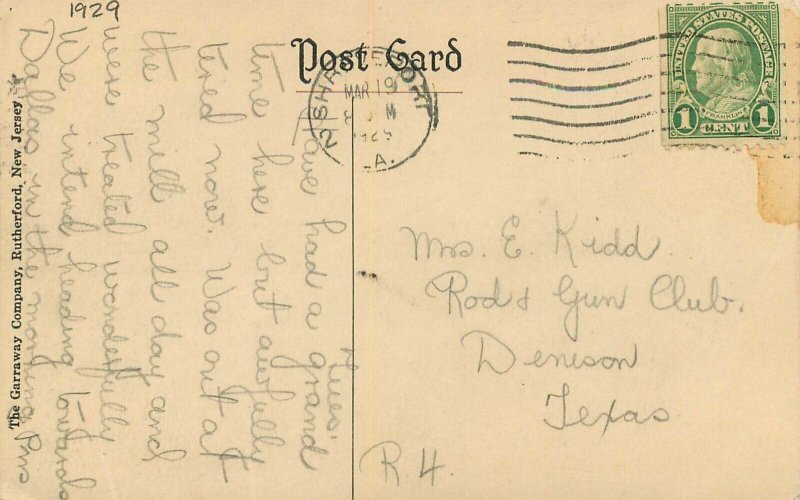 1929
Post Card
SHREVEPORT
MAR 19
M
LA.
UNITED STATES POSTAGE
FRANKLIN
1 CENT 1
Tues.
Have had a grand
time here but awfully
tired now. Was out at
the mill all day and
were treated wonderfully.
We intend heading towards
Dallas in the morning
The Garraway Company, Rutherford, New Jersey
Mrs. E. Kidd
Rod & Gun Club.
Denison
Texas
R 4.